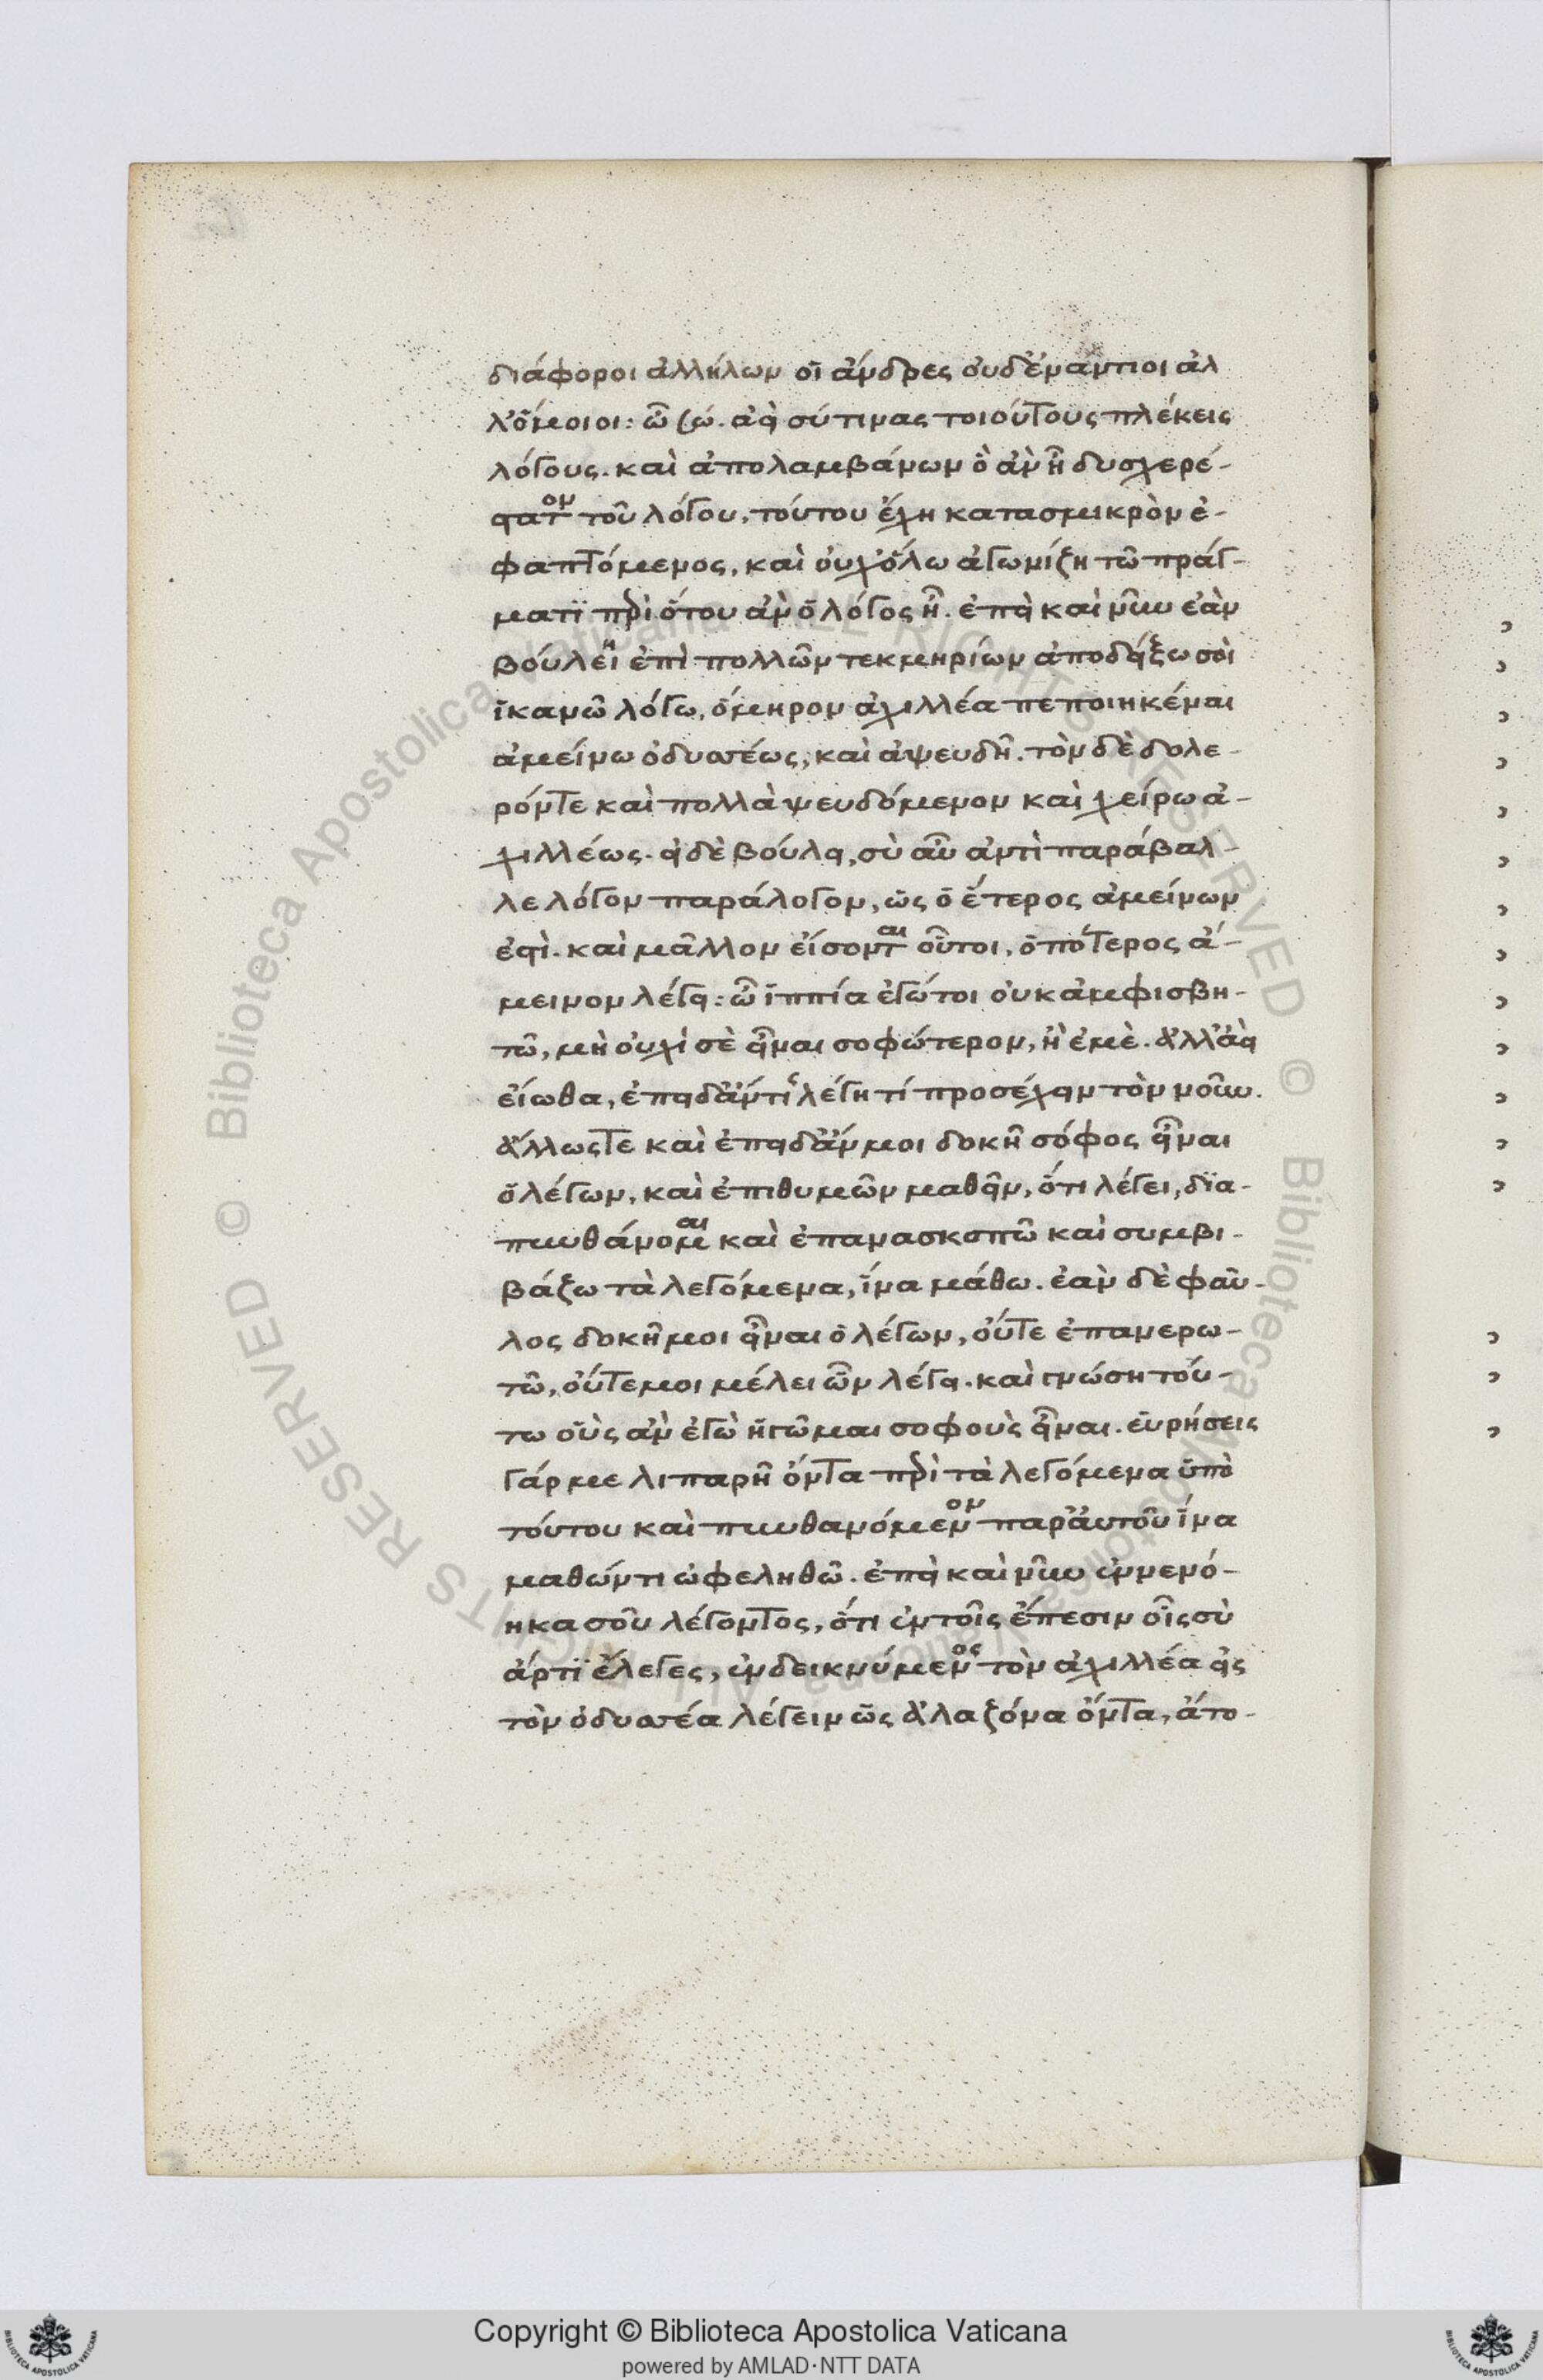 διάφοροι ἀλλήλων οἱ ἄνδρες οὐδ' ἐναντίοι ἀλ
λ' ὅμοιοι: ὦ σώ. ἀεὶ σύ τινας τοιούτους πλέκεις
λόγους. καὶ ἀπολαμβάνων ὃ ἂν ἦ δυσχερέ-
στατον τοῦ λόγου, τούτου ἔχη κατασμικρὸν ἐ-
φαπτόμενος, καὶ οὐχ' ὅλω ἀγωνίζη τῶ πράγ-
ματϊ περὶ ὅτου ἂν ὁ λόγος ἦ. ἐπεὶ καὶ νῦν ἐὰν
βούλεϊη ἐπὶ πολλῶν τεκμηρίων ἀποδείξω σοὶ
ἱκανῶ λόγω, ὅμηρον ἀχιλλέα πεποιηκέναι
ἀμείνω ὀδυσσέως, καὶ ἀψευδῆ. τὸν δὲ δολε-
ρόν τε καὶ πολλὰ ψευδόμενον καὶ χείρω ἀ-
χιλλέως. εἰ δὲ βούλει, σὺ αὖ ἀντιπαράβαλ-
λε λόγον παράλογον, ὡς ὁ ἕτερος ἀμείνων
ἐστὶ. καὶ μᾶλλον εἴσονται οὗτοι, ὁπότερος ἄ-
μεινον λέγει: ὦ ἱππία ἐγώ τοι οὐκ ἀμφισβη-
τῶ, μὴ οὐχί σὲ εἶναι σοφώτερον, ἢ ἐμὲ. ἀλλ' ἀεὶ
εἴωθα, ἐπειδάν τίς λέγη τί προσέχειν τὸν νοῦν.
ἄλλως τε καὶ ἐπειδάν μοι δοκῆ σόφος εἶναι
ὁ λέγων, καὶ ἐπιθυμῶν μαθεῖν, ὅτι λέγει, δϊα-
πυνθάνομαι καὶ ἐπανασκοπῶ καὶ συμβι-
βάζω τὰ λεγόμενα, ἵνα μάθω. ἐὰν δὲ φαῦ-
λος δοκῆ μοι εἶναι ὁ λέγων, οὔτε ἐπανερω-
τῶ, οὔτε μοι μέλει ὧν λέγει. καὶ γνώση τού-
τω οὓς ἂν ἐγὼ ἡγῶμαι σοφοὺς εἶναι. εὑρήσεις
γάρ με λιπαρῆ ὄντα περὶ τὰ λεγόμενα ὑπὸ
τούτου καὶ πυνθανόμενον παρ' αὐτοῦ ἵνα
μαθών τι ὠφεληθῶ. ἐπεὶ καὶ νῦν ἐννενό-
ηκα σοῦ λέγοντος, ὅτι ἐν τοῖς ἔπεσιν οἷς σὺ
ἄρτϊ ἔλεγες, ἐνδεικνύμενος τὸν ἀχιλλέα εἰς
τὸν ὀδυσσέα λέγειν ὡς ἀλαζόνα ὄντα, ἄτο-
Copyright © Biblioteca Apostolica Vaticana
powered by AMLAD·NTT DATA